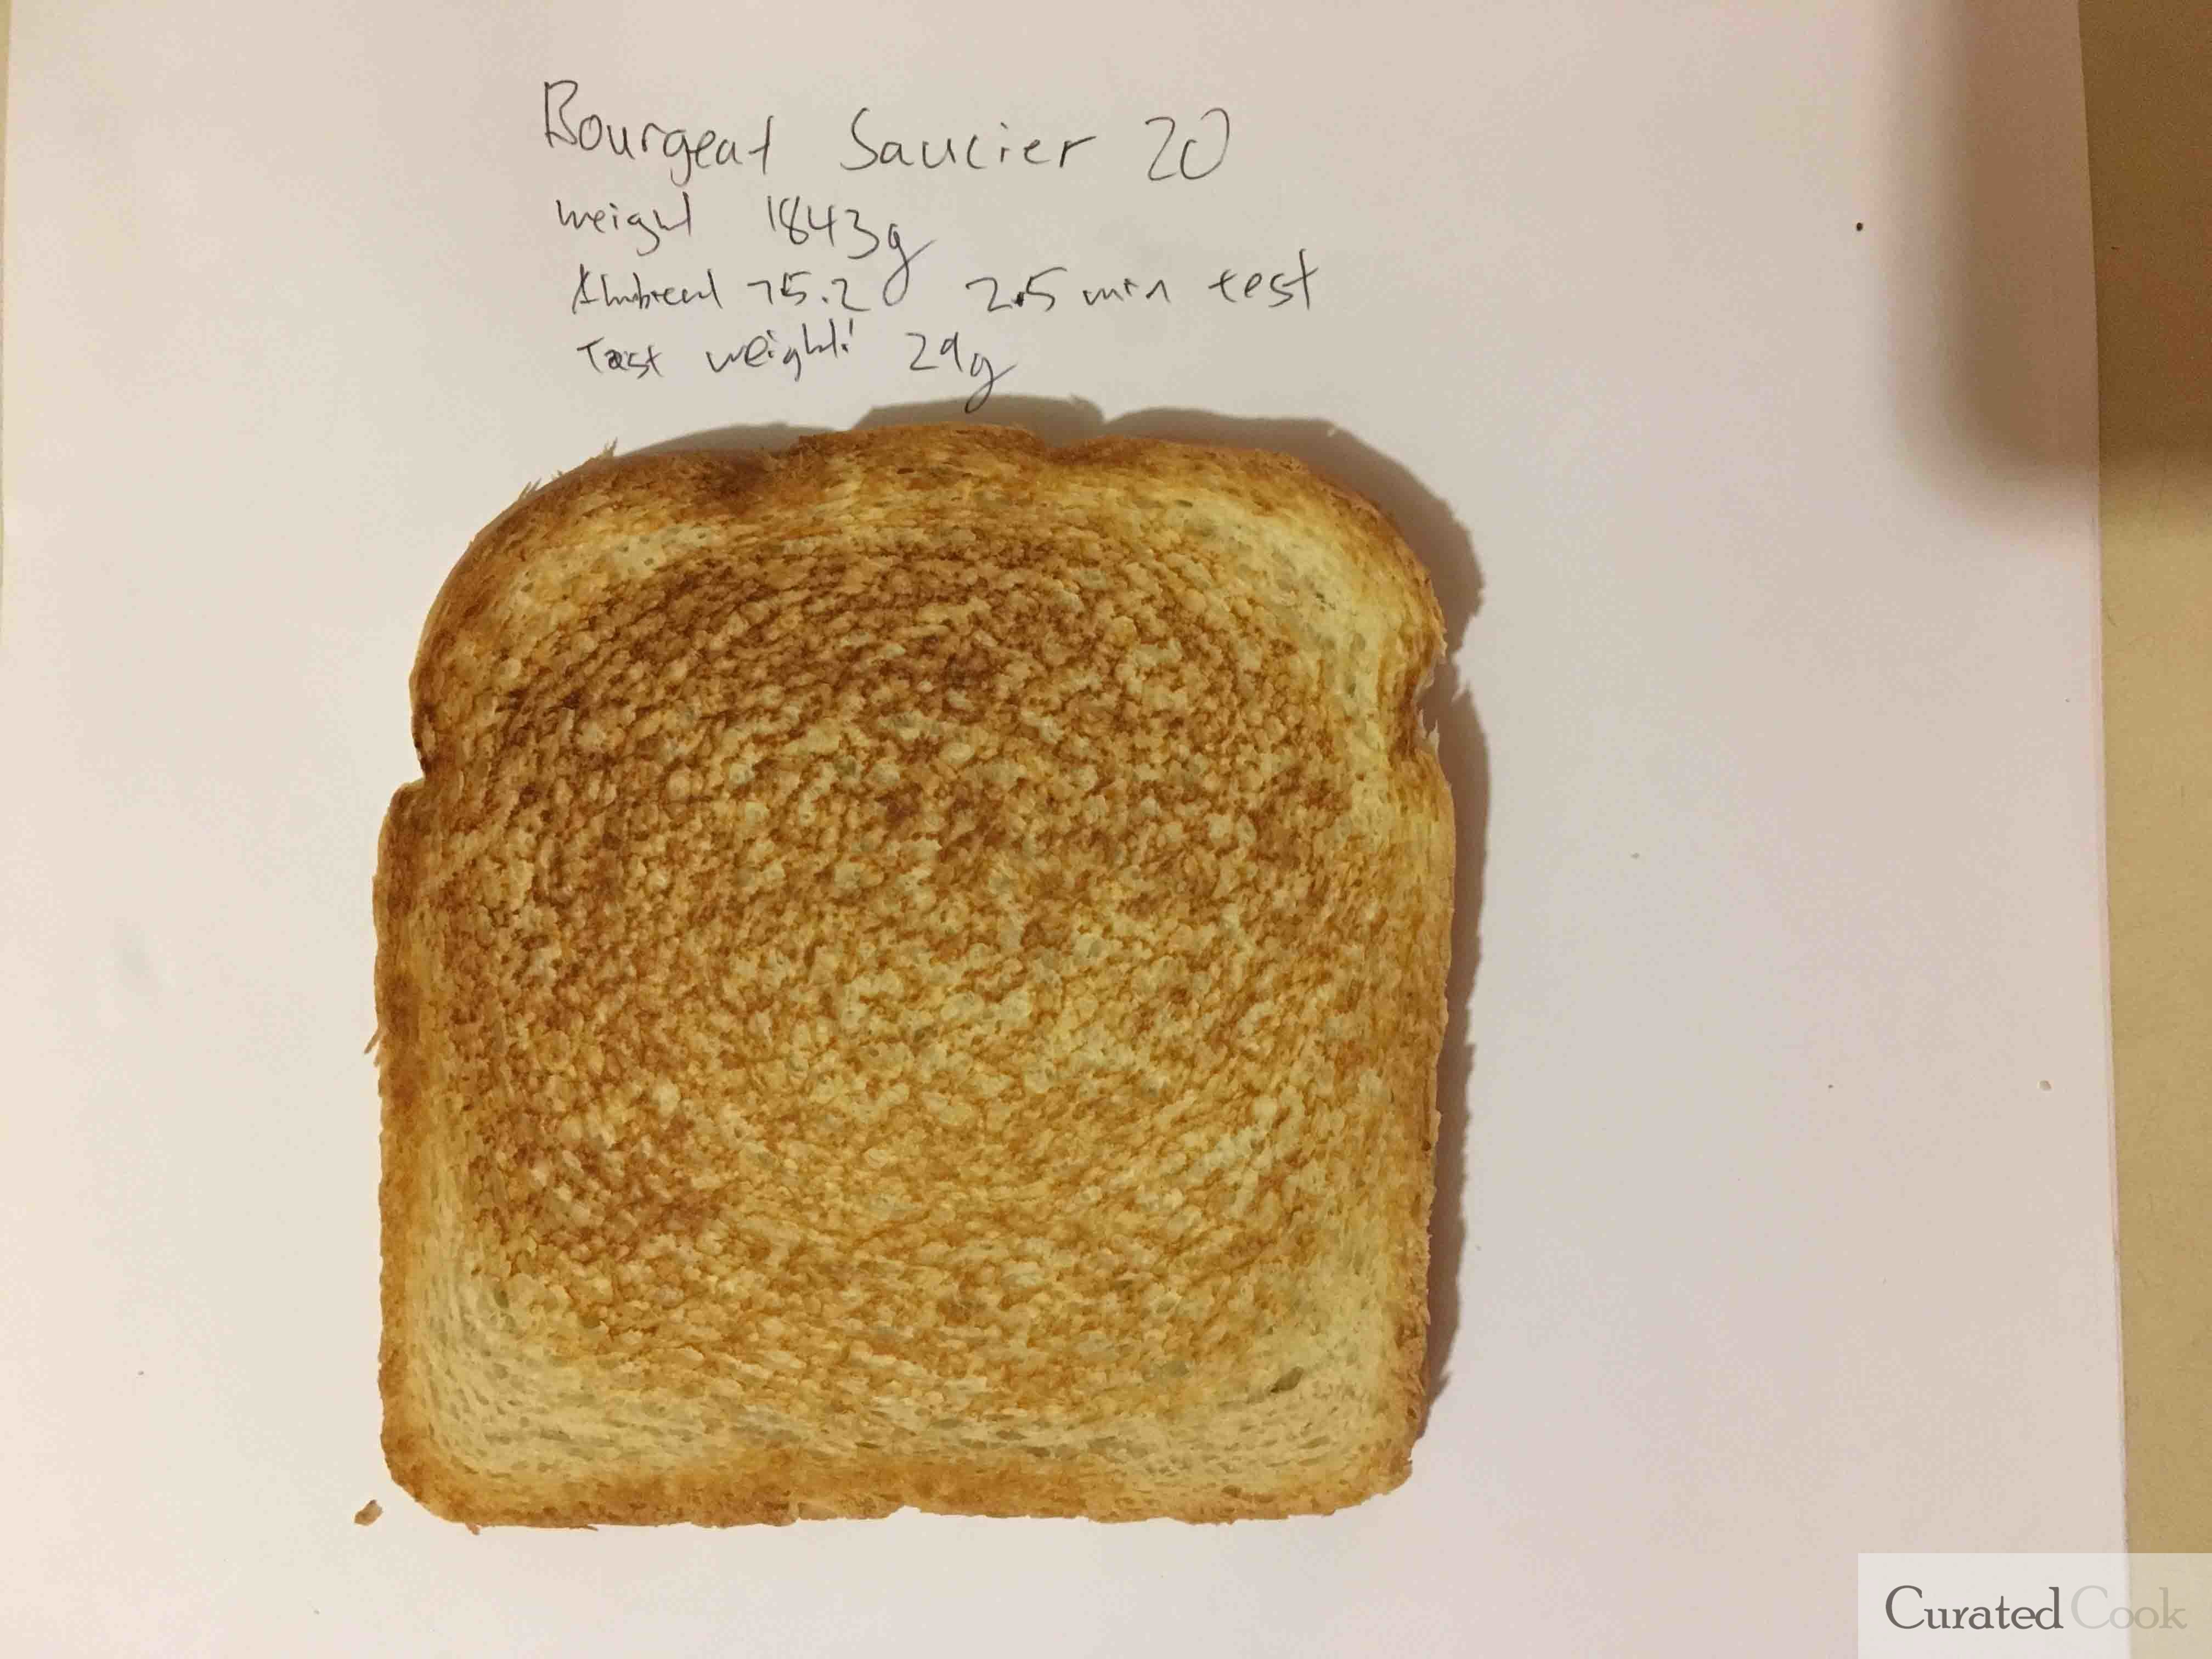 Bourgeat Saucier 20
weight 1843g
75.2 2.5 min test
Tast weight: 29g
Curated Cook